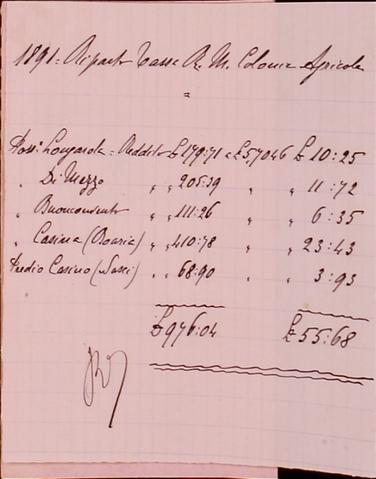 1891= Riparto Tassa R. M. Colonia Agricola
=
Poss: Longarola = Reddito £ 179:71 a £ 5,7046 £ 10:25
" Di Mezzo " " 205:39 " " 11:72
" Buonconvento " " 111:26 " " 6:35
" Casina (Boaria) " " 410:78 " " 23:43
Predio Casino (Sassi) " " 68:90 " " 3:93
£ 976:04 £ 55:68